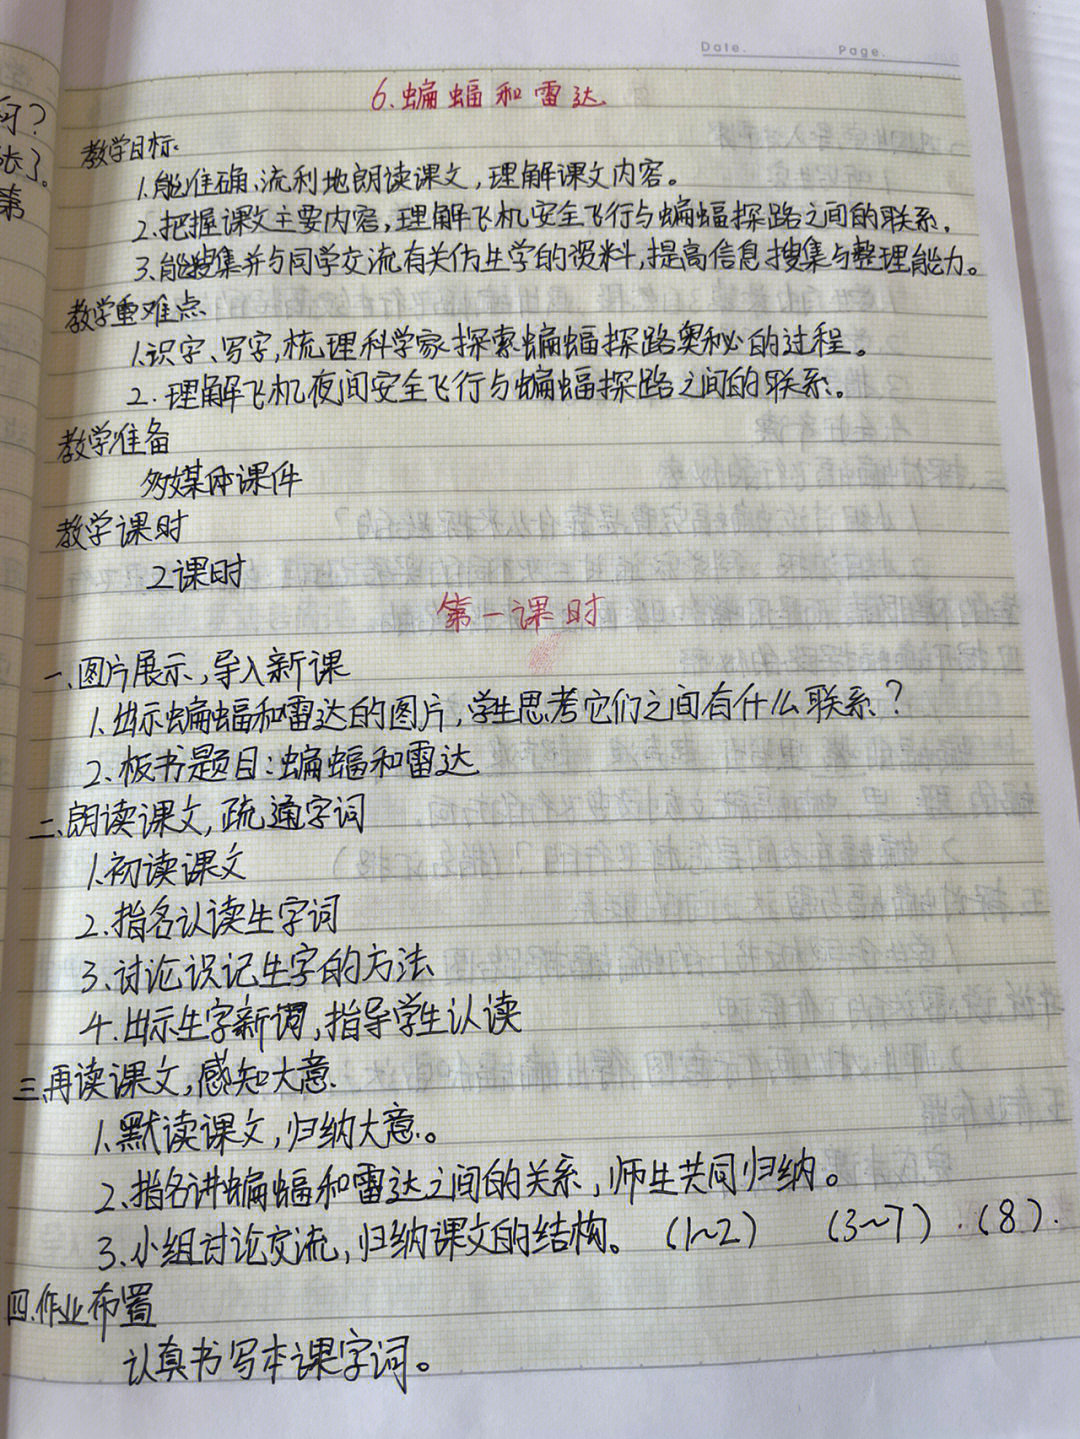 Date.
Page.
何?
张了。
第
6.蝙蝠和雷达
教学目标:
1.能准确、流利地朗读课文,理解课文内容。
2.把握课文主要内容,理解飞机安全飞行与蝙蝠探路之间的联系。
3.能搜集并与同学交流有关仿生学的资料,提高信息搜集与整理能力。
教学重难点
1.识字、写字,梳理科学家探索蝙蝠探路奥秘的过程。
2.理解飞机夜间安全飞行与蝙蝠探路之间的联系。
教学准备
多媒体课件
教学课时
2课时
第一课时
一、图片展示,导入新课
1.出示蝙蝠和雷达的图片,学生思考它们之间有什么联系?
2.板书题目:蝙蝠和雷达
二、朗读课文,疏通字词
1.初读课文
2.指名认读生字词
3.讨论识记生字的方法
4.出示生字新词,指导学生认读
三、再读课文,感知大意
1.默读课文,归纳大意。
2.指名讲蝙蝠和雷达之间的关系,师生共同归纳。
3.小组讨论交流,归纳课文的结构。 (1~2) (3~7) (8).
四.作业布置
认真书写本课字词。